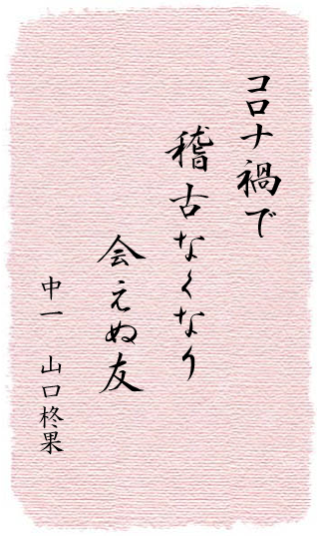 コロナ禍で
稽古なくなり
会えぬ友
中一 山口柊果